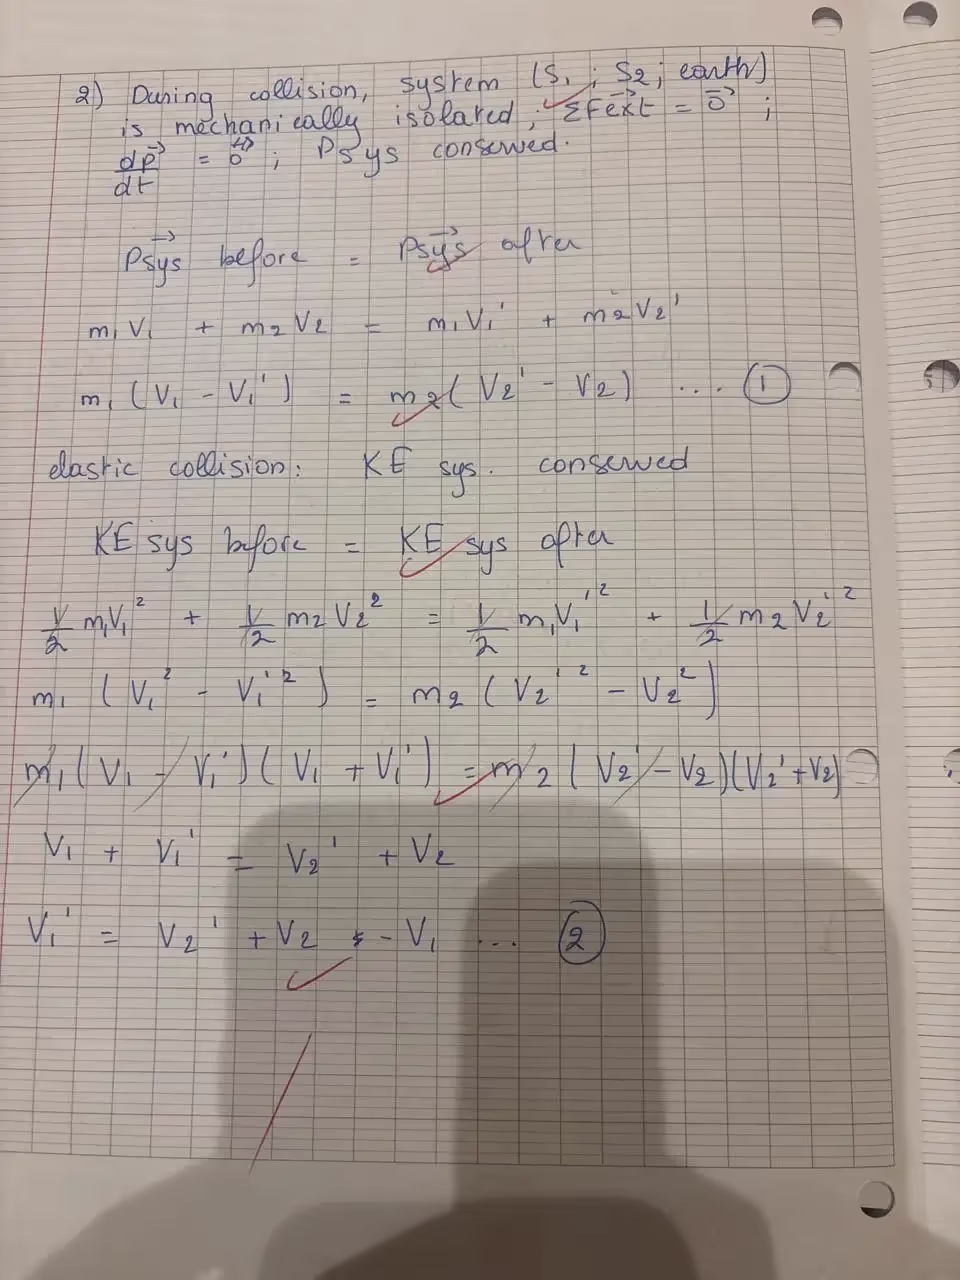 2) During collision, system (S₁ ; S₂ ; earth)
is mechanically isolated ; ΣF⃗ext = 0⃗ ;
dP⃗/dt = 0⃗ ; Psys conserved.
P⃗sys before = P⃗sys after
m₁V₁ + m₂V₂ = m₁V₁' + m₂V₂'
m₁(V₁ - V₁') = m₂(V₂' - V₂) ... ①
elastic collision: KE sys. conserved
KE sys before = KE sys after
1/2 m₁V₁² + 1/2 m₂V₂² = 1/2 m₁V₁'² + 1/2 m₂V₂'²
m₁(V₁² - V₁'²) = m₂(V₂'² - V₂²)
m₁(V₁ - V₁')(V₁ + V₁') = m₂(V₂' - V₂)(V₂' + V₂)
V₁ + V₁' = V₂' + V₂
V₁' = V₂' + V₂ - V₁ ... ②